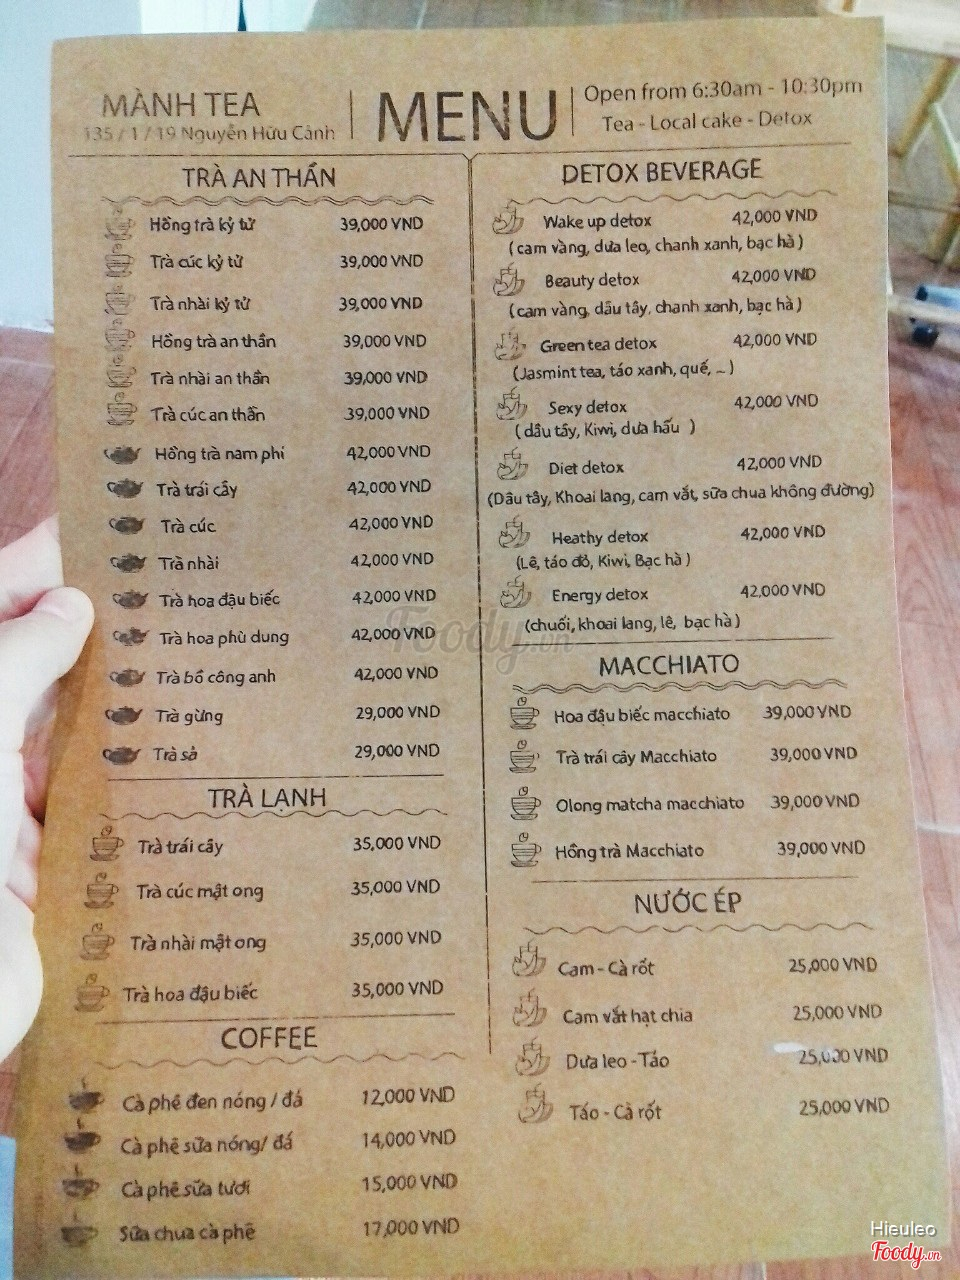 MÀNH TEA
135 / 1 / 19 Nguyễn Hữu Cảnh
MENU
Open from 6:30am - 10:30pm
Tea - Local cake - Detox
TRÀ AN THẦN
Hồng trà kỷ tử 39,000 VND
Trà cúc kỷ tử 39,000 VND
Trà nhài kỷ tử 39,000 VND
Hồng trà an thần 39,000 VND
Trà nhài an thần 39,000 VND
Trà cúc an thần 39,000 VND
Hồng trà nam phi 42,000 VND
Trà trái cây 42,000 VND
Trà cúc 42,000 VND
Trà nhài 42,000 VND
Trà hoa đậu biếc 42,000 VND
Trà hoa phù dung 42,000 VND
Trà bồ công anh 42,000 VND
Trà gừng 29,000 VND
Trà sả 29,000 VND
TRÀ LẠNH
Trà trái cây 35,000 VND
Trà cúc mật ong 35,000 VND
Trà nhài mật ong 35,000 VND
Trà hoa đậu biếc 35,000 VND
COFFEE
Cà phê đen nóng / đá 12,000 VND
Cà phê sữa nóng/ đá 14,000 VND
Cà phê sữa tươi 15,000 VND
Sữa chua cà phê 17,000 VND
DETOX BEVERAGE
Wake up detox 42,000 VND
( cam vàng, dưa leo, chanh xanh, bạc hà )
Beauty detox 42,000 VND
(cam vàng, dấu tây, chanh xanh, bạc hà )
Green tea detox 42,000 VND
(Jasmint tea, táo xanh, quế, ... )
Sexy detox 42,000 VND
( dâu tây, Kiwi, dưa hấu )
Diet detox 42,000 VND
(Dâu tây, Khoai lang, cam vắt, sữa chua không đường)
Heathy detox 42,000 VND
(Lê, táo đỏ, Kiwi, Bạc hà )
Energy detox 42,000 VND
(chuối, khoai lang, lê, bạc hà )
MACCHIATO
Hoa đậu biếc macchiato 39,000 VND
Trà trái cây Macchiato 39,000 VND
Olong matcha macchiato 39,000 VND
Hồng trà Macchiato 39,000 VND
NƯỚC ÉP
Cam - Cà rốt 25,000 VND
Cam vắt hạt chia 25,000 VND
Dưa leo - Táo 25,000 VND
Táo - Cà rốt 25,000 VND
Foody.vn
Hieuleo
Foody.vn